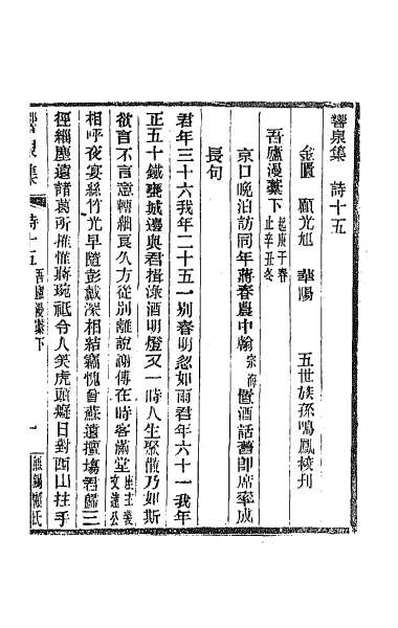 響泉集　詩十五
金匱　顧光旭　華陽　五世族孫鳴鳳校刊
吾廬漫藁下　起庚子春止辛丑冬
京口晚泊訪同年蔣春農中翰宗海置酒話舊卽席率成
長句
君年三十六我年二十五一別春明忽如雨君年六十一我年
正五十鐵甕城邊與君揖淥酒明燈又一時人生聚散乃如斯
欲言不言意轉細良久方從別離說謝傅在時客滿堂座主裘文達公
相呼夜宴絲竹光早隨彭戴深相結竊愧曾蘇遠擅塲君歸三
徑緇塵遠諸葛所推惟蔣琬祗令人笑虎頭癡日對西山拄手
響泉集　詩十五　吾廬漫藁下　一　無錫顧氏